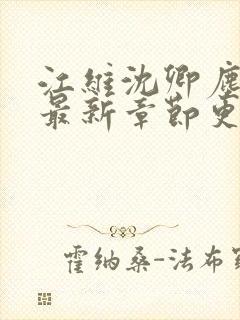 江維沈卿塵
最新章節更
霍纳桑-法布